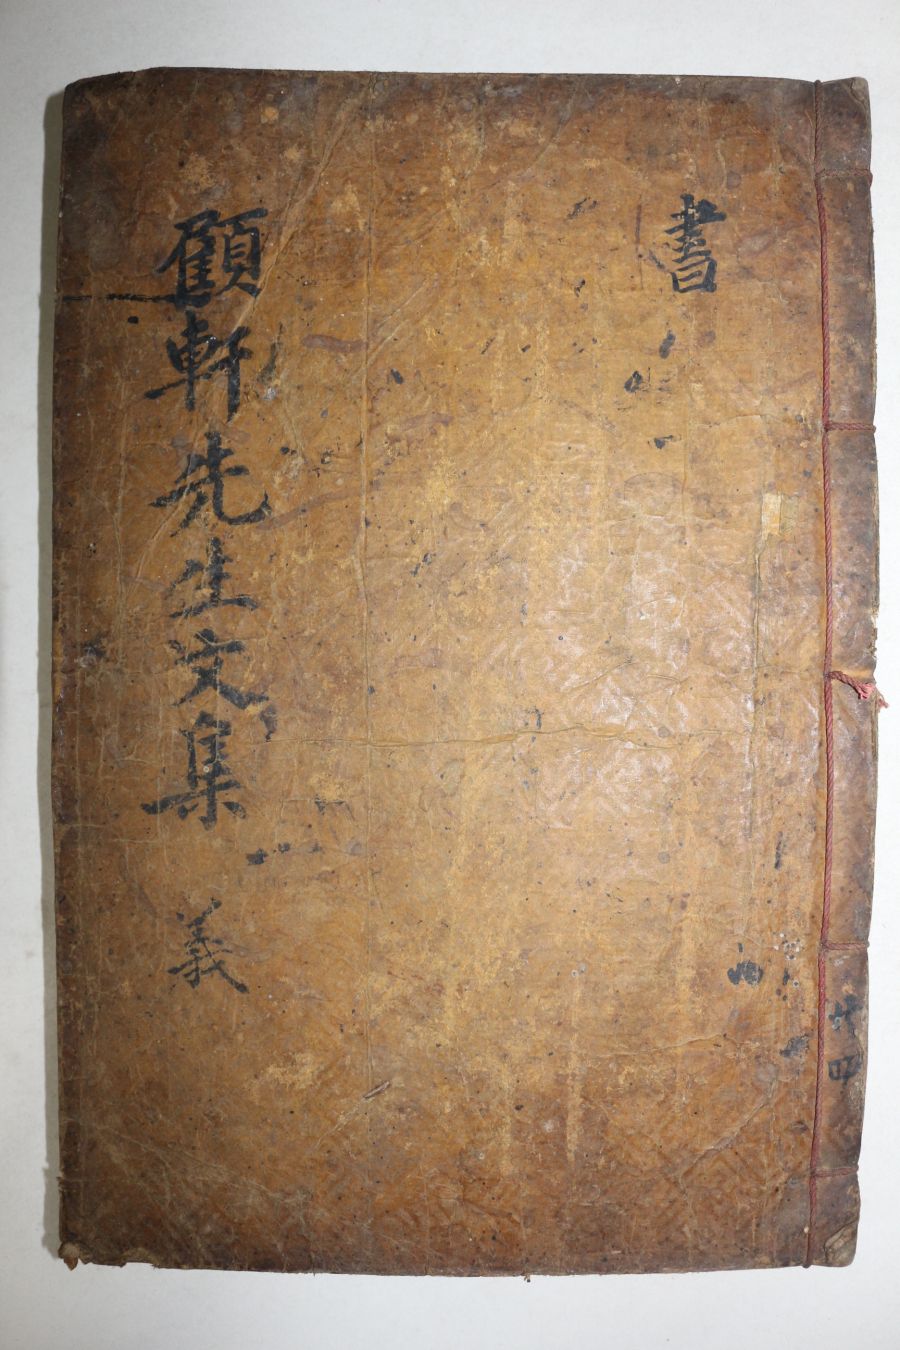 書
顧軒先生文集 義